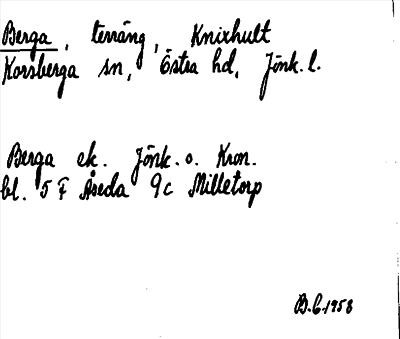 Berga, terräng, Knixhult
Korsberga sn, Östra hd, Jönk. l.
Berga ek. Jönk. o. Kron.
bl. 5 F Åseda 9c Milletorp
B.C. 1958